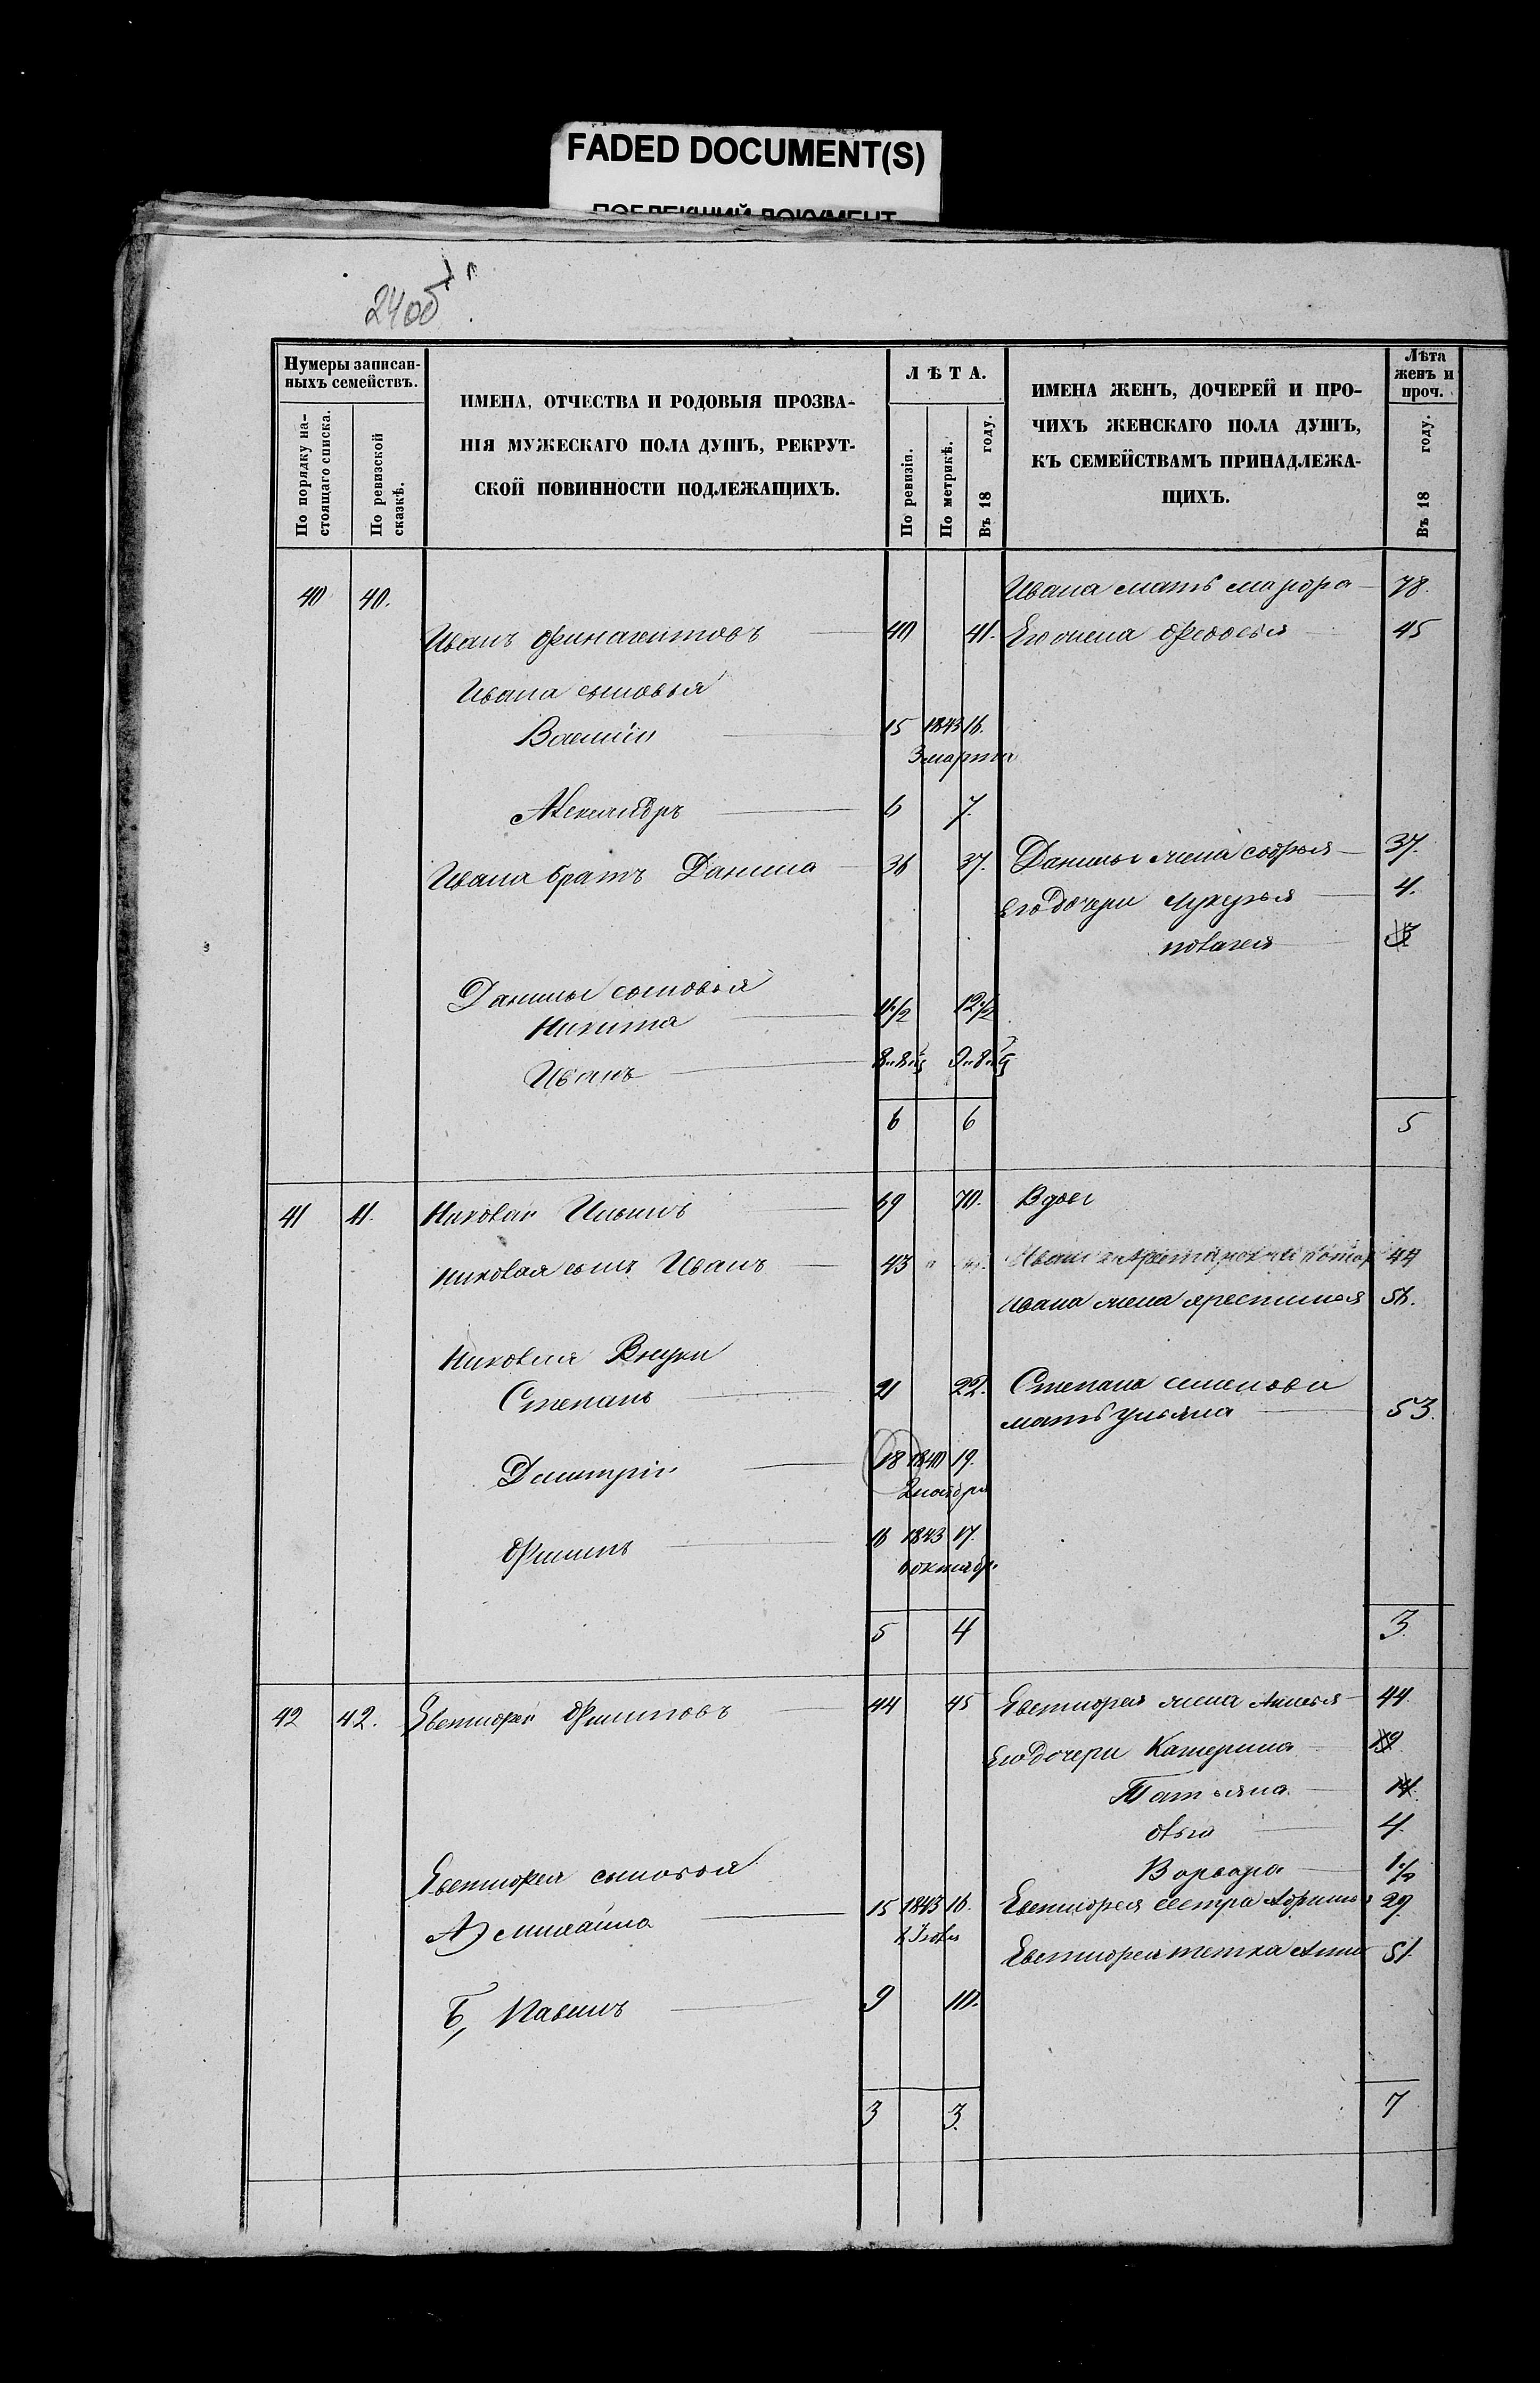 FADED DOCUMENT(S)
ПОБЛЕКШИЙ ДОКУМЕНТ
24об
Нумеры записан-
ныхъ семействъ.
По порядку на-
стоящаго списка.
По ревизской
сказкѣ.
ИМЕНА, ОТЧЕСТВА И РОДОВЫЯ ПРОЗВА-
НІЯ МУЖЕСКАГО ПОЛА ДУШЪ, РЕКРУТ-
СКОЙ ПОВИННОСТИ ПОДЛЕЖАЩИХЪ.
ЛѢТА.
По ревизіи.
По метрикѣ.
Въ 18 году.
ИМЕНА ЖЕНЪ, ДОЧЕРЕЙ И ПРО-
ЧИХЪ ЖЕНСКАГО ПОЛА ДУШЪ,
КЪ СЕМЕЙСТВАМЪ ПРИНАДЛЕЖА-
ЩИХЪ.
Лѣта
женъ и
проч.
Въ 18 году.
40 40. Ивана мать 78.
Иванъ 40 41. Его жена Федосья 45
Ивана сыновья
Василій 15 1843 16.
3 марта
Александръ 6 7.
Ивана братъ Данила 36 37. Данилы жена Софья 37.
Его дочери Лукерья 4.
Данилы сыновья
Никита 11 1/2 12 1/2
Иванъ
6 6 5
41 41. Николай Ильинъ 69 70. Вдовъ
Николая сынъ Иванъ 43 44
Ивана жена 56.
Николая Внуки
Степанъ 21 22. Степана Семенова
мать Ульяна 53.
Дмитрій 18 1840 19.
2 ноября
Филипъ 16 1843 17.
6 октябр.
5 4 3.
42 42. Евтифей Филиповъ 44 45 Евтифея жена 44
Его дочери Катерина 19
Татьяна 14.
4.
Варвара
Евтифея сыновья
А) Михайла 15 1843 16. Евтифея сестра 29
Евтифея тетка Анна 51.
Б, Павелъ 9 10.
3 3. 7